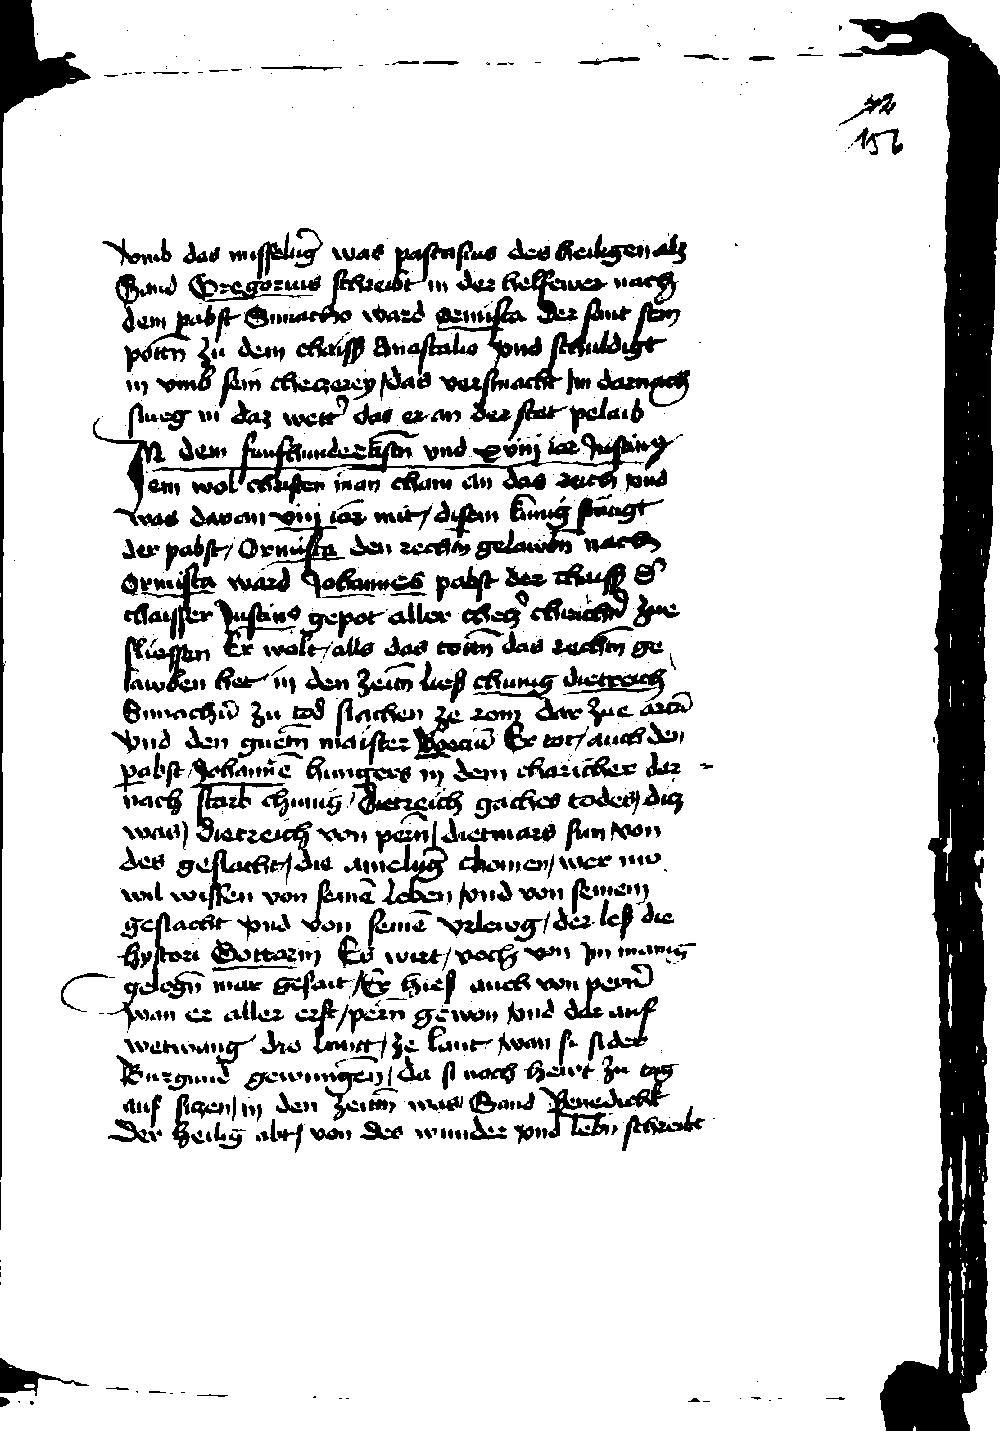 72
156
vmb das misselūg was pascasius des heiligen als
Sand Gregorius schreibt in der helfewer nach
dem pabst Simacho ward Ormista der sant sein
potn̄ zu dem chaiss Anastasio vnd schuldigt
in vmb sein checzerey / das versmacht Im darnach
slueg in daz wett' das er an der stat pelaib
IN dem funfhundertistn̄ vnd xviij iar Justinꝰ
ein wol christen man cham an das reich vnd
was daran viiij iar mit / disem kunig
der pabst / Ormista den rechtn gelawbn̄ nach
Ormista ward Johannes pabst der chaiss D'
chaisser Justinꝰ gepot aller checz' chirichn̄ zue
sliessen Er wolt / alls das rechtn̄ ge
lawben het in den zeitn̄ lies chunig dietreich
Simachū zu tod slachen ze rom dar zue
Vnd den guetn̄ maister Boeciū Er tot / auch den
pabst / Johannē hungers in dem charicher dar
nach starb chunig / Dietreich gaches todes / diz
was / Dietreich von pern̄ / dietmars sun / von
des geslacht / die amelūg chomen / wer nu
wil wissen von seinē leben / vnd von seinem
geslacht vnd von seinē vrlewg / der les die
hystori Gottorin Er wirt / noch von Im manig
gelogn̄ mar gesait / Er hies auch von pern̄
wan er aller erst / pern̄ gewon vnd dar auf
die lant / ze lant / wan si sider
Burgund gewungen̄ / da si noch hewt zu tag
auf siczen / in den zeitn̄ was Sand Benedickt
Der heilig abt / von des wunder vnd lebn̄ schreibt